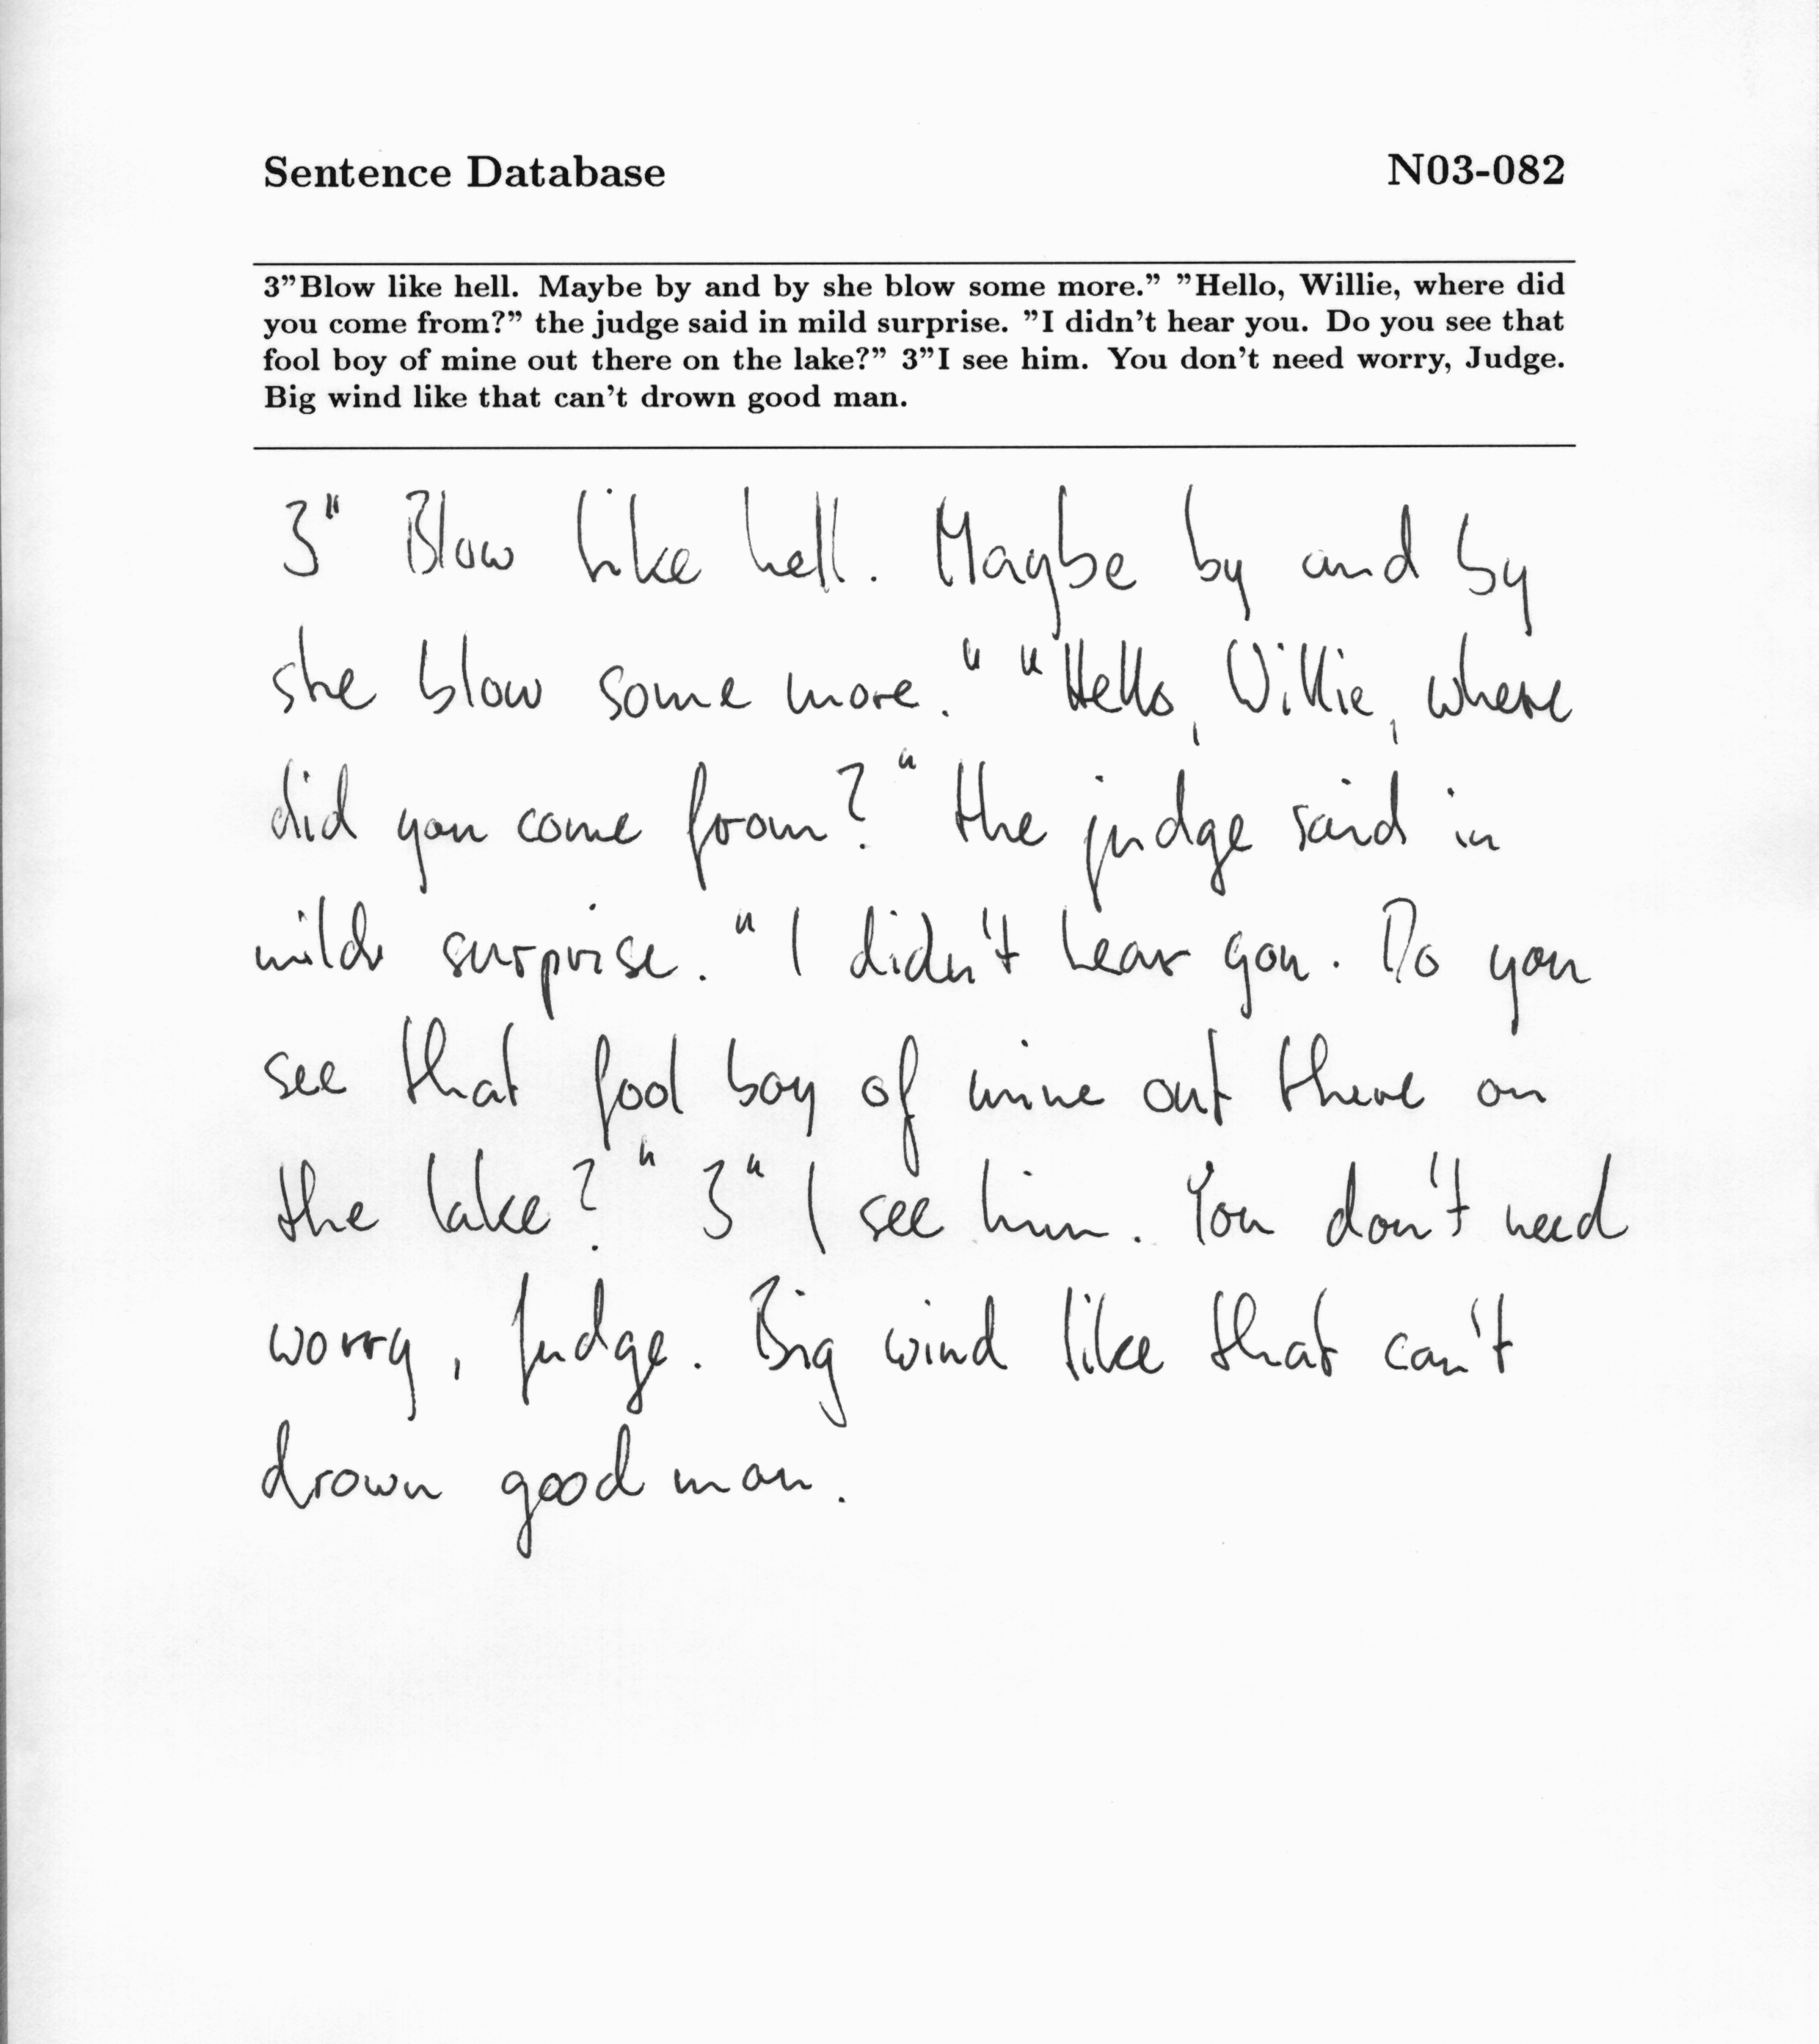 Sentence Database N03-082
3”Blow like hell. Maybe by and by she blow some more.” ”Hello, Willie, where did
you come from?” the judge said in mild surprise. ”I didn’t hear you. Do you see that
fool boy of mine out there on the lake?” 3”I see him. You don’t need worry, Judge.
Big wind like that can’t drown good man.
3" Blow like hell. Maybe by and by
she blow some more." "Hello, Willie, where
did you come from?" the judge said in
mild surprise. "I didn't hear you. Do you
see that fool boy of mine out there on
the lake?" 3" I see him. You don't need
worry, Judge. Big wind like that can't
drown good man.